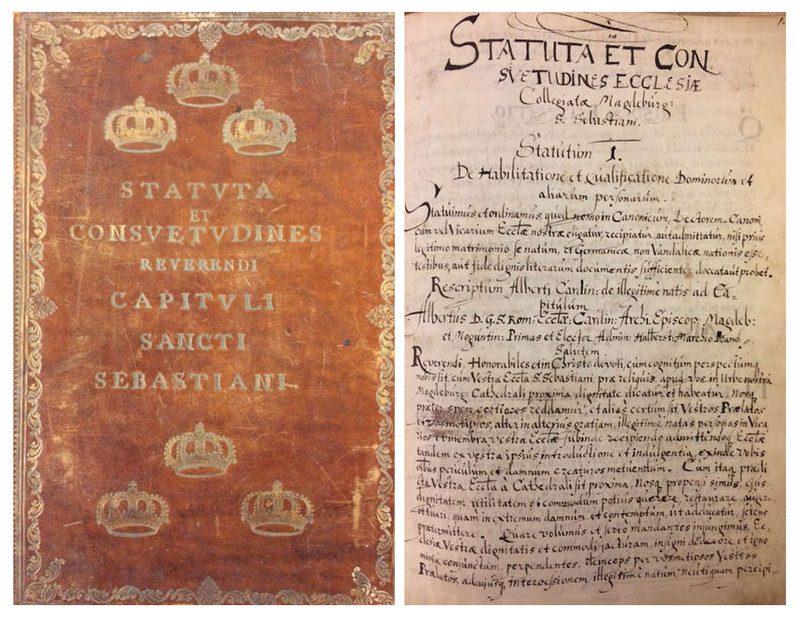 STATVTA
ET
CONSVETVDINES
REVERENDI
CAPITVLI
SANCTI
SEBASTIANI
STATUTA ET CON
SVETUDINES ECCLESIÆ
Collegiatæ Magdeburg:
S. Sebastiani.
Statutum I.
De Habilitatione et Qualificatione Dominorum et
aliarum personarum.
Statuimus et ordinamus, quod nemo in Canonicum, Lectorem, Canoni,
cum vel Vicarium Ecclæ nostræ eligatur, recipiatur, aut admittatur, nisi prius
legitimo matrimonio se natum, et Germanicæ, non Vandalicæ nationis esse,
testibus, aut fide dignis literarum documentis sufficienter doceat aut probet.
Rescriptum Alberti Cardin: de illegitime natis ad Ca-
pitulum
Albertus D. G. S. Rom: Eccl æ: Cardin: Archi Episcop: Magdeb:
et Moguntin: Primas et Elector, Admin: Halberst: Marchio Brand:
Salutem
Reverendi, Honorabiles et in Christo devoti, cum cognitum perspectumq
nobis sit, cum Vestra Eccl a S. Sebastiani, præ reliquis, apud vos in Urbe nostra
Magdeburg: Cathedrali proxima dignitate dicatur et habeatur, Nosq
præter spem certiores reddamur, et alias certum sit Vestros Prælatos
et vosmetipsos, alter in alterius gratiam, illegitime natas personas in Vica
rios et membra vestræ Eccl æ subinde recipiendo admittendoq Eccl æ
tandem ex vestra ipsius introductione et indulgentia, exinde vobis
omnibus periculum et damnum creaturos metuentum. Cum itaq prædi
cta Vestra Eccl a à Cathedrali sit proxima, Nosq propensi simus, ejus
dignitatem utilitatem et commodum potius quærere, restaurare, augere
et tueri, quam in extremum damnum et contemptum, ut adducatur,
prætermittere. Quare volumus et serio mandantes injungimus, Ec,
clesiæ Vestræ dignitatis et commodi jacturam, insigni dedecore et igno
minia conjunctam, perpendentes, deinceps per vosmetipsos Vestros
Prælatos, ad cujusq intercessionem illegitime natum neutiquam percipi-